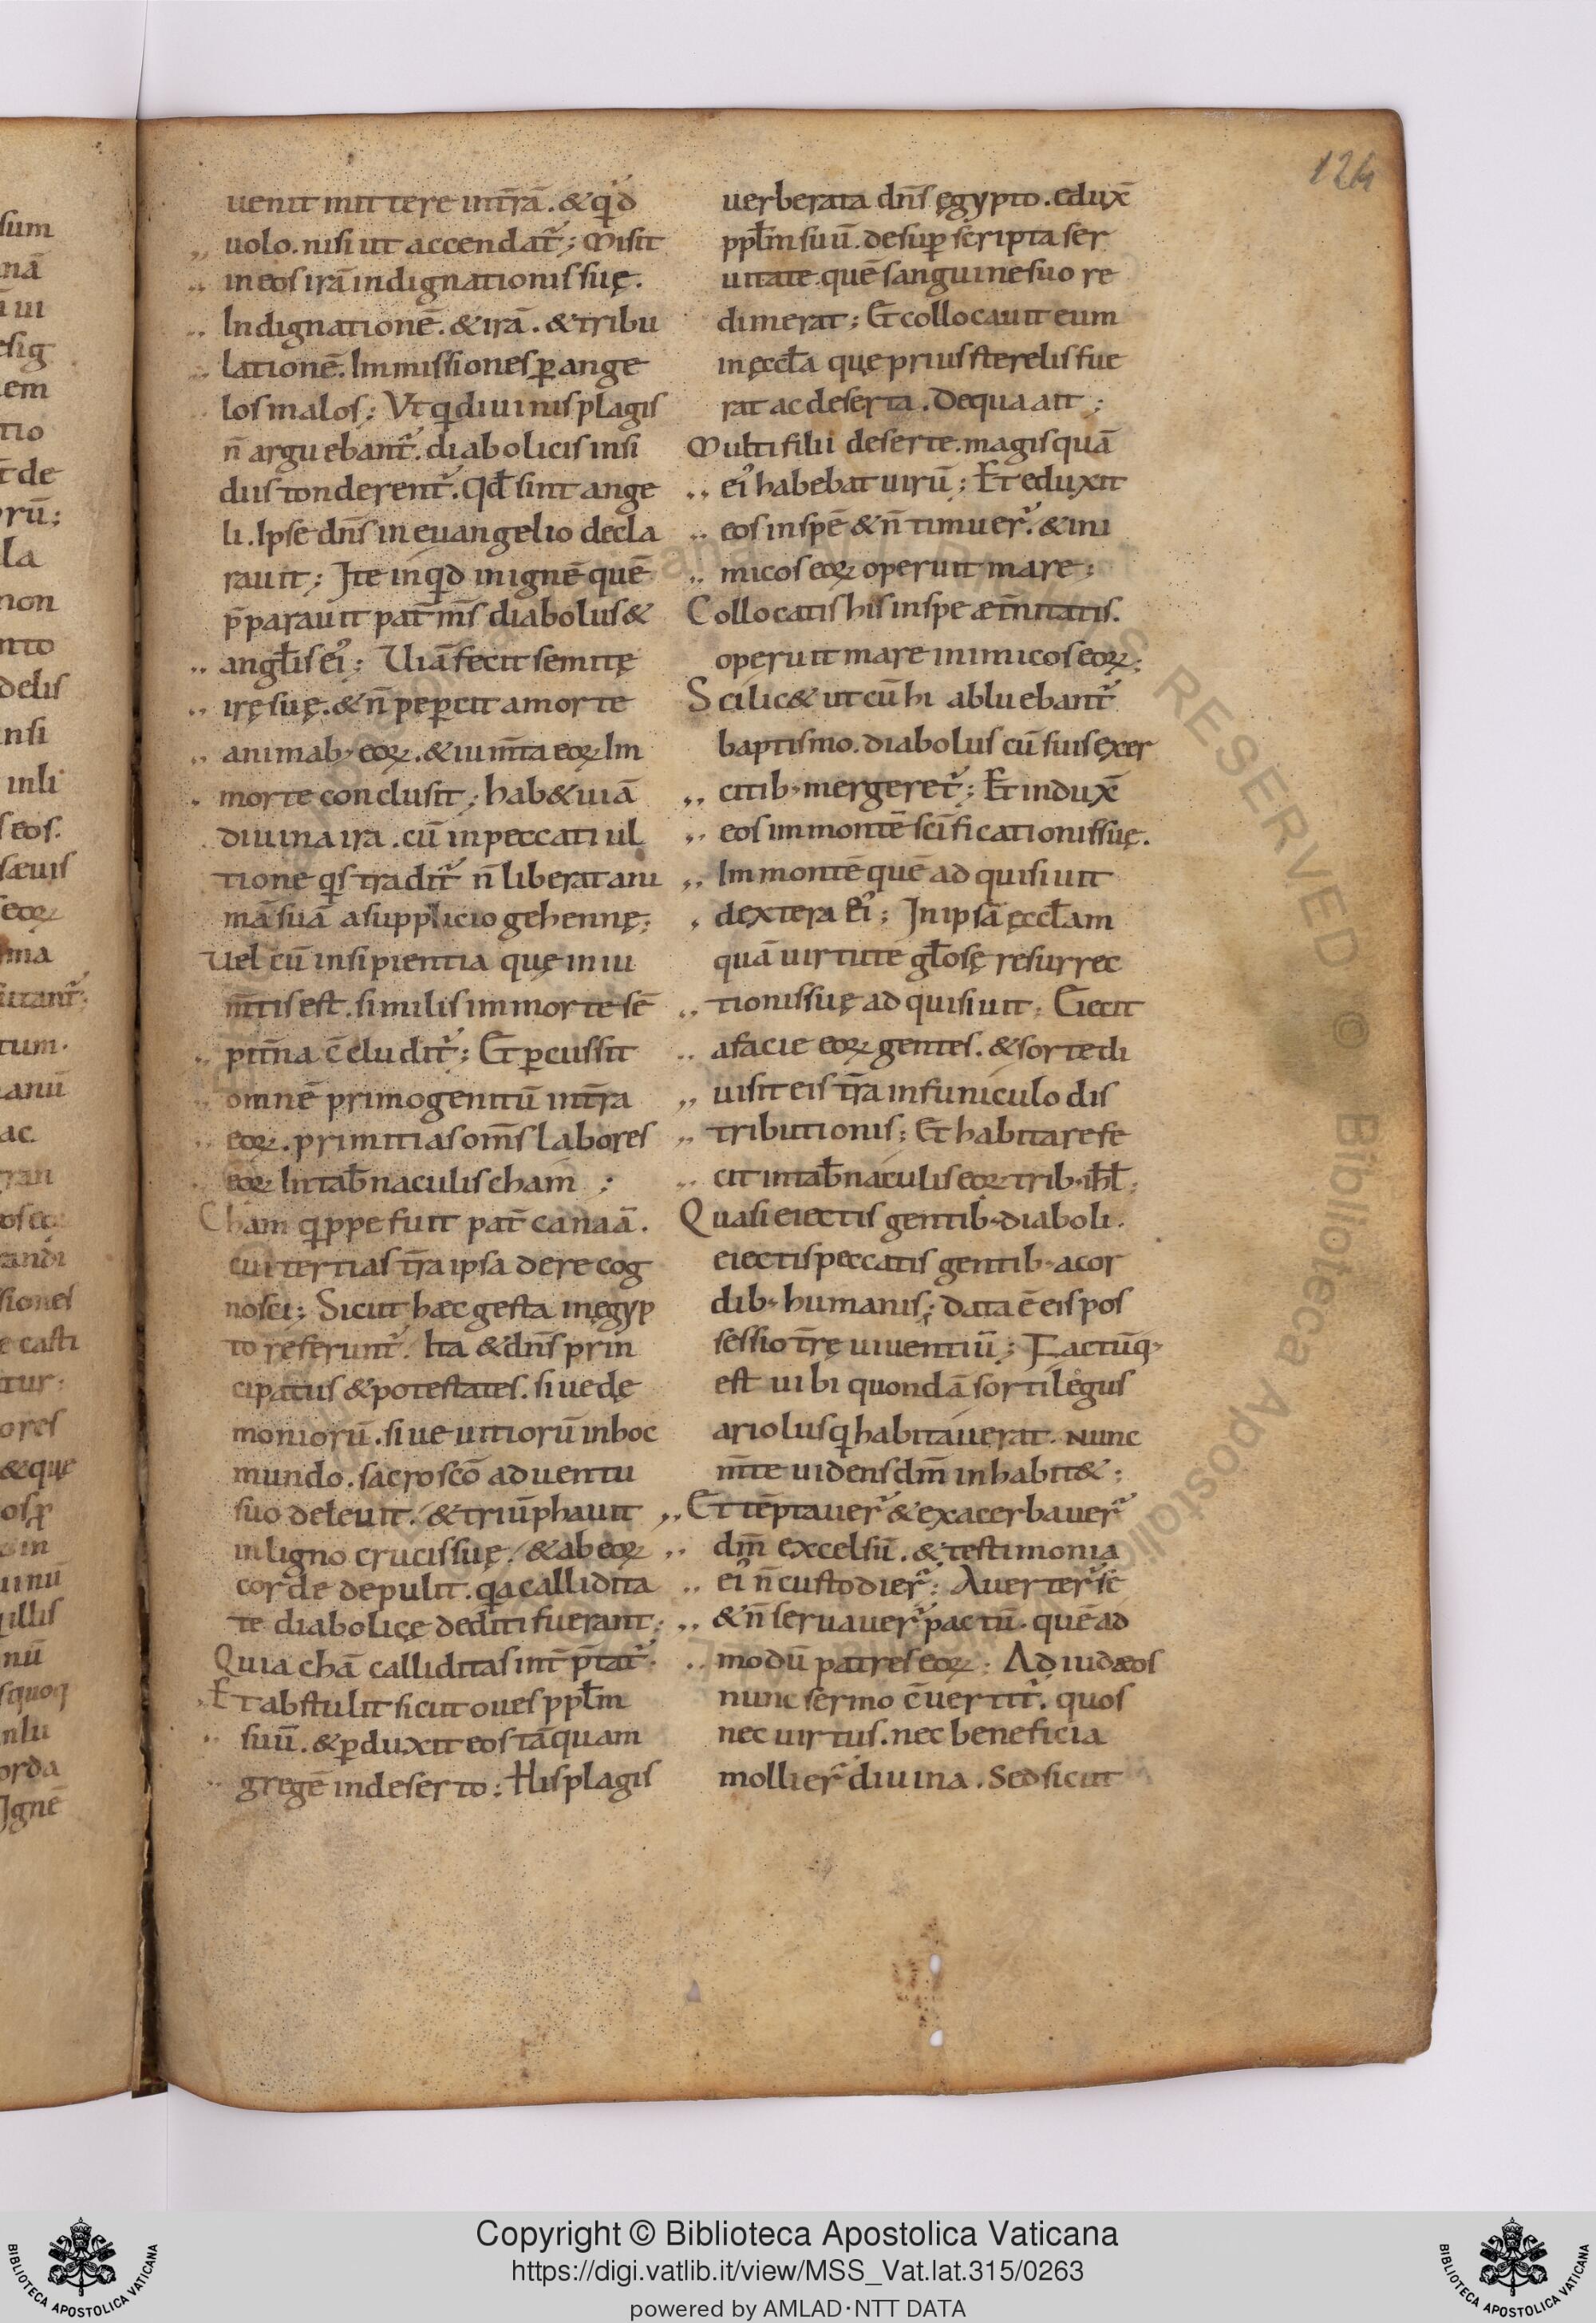 124
uenit mittere int̄rā. & qd
uolo. nisi ut accendat̄; Misit
in eos irā indignationis suę.
Indignationē. & irā. & tribu
lationē. Immissiones ꝑ ange
los malos; Vt qui diuinis plagis
n̄ arguebant̄. diabolicis insi
diis tonderent̄. Qđ sint ange
li. Ipse dn̄s in euangelio decla
rauit; Ite inqd in ignē quē
p̄parauit pat̄ m̄s diabolus &
angłis ei'; Uiā fecit semitę
irę suę. & n̄ peꝑcit a morte
animab; eoꝝ. & ium̄ta eoꝝ Im
morte conclusit; hab& uiā
diuina ira. cū in peccati ul
tione qis tradit̄ n̄ liberat ani
mā suā a supplicio gehennę;
Uel cū insipientia quę in iu
m̄tis est. similis im morte sē
pit̄na c̄cludit̄; Et ꝑcussit
omnē primogenitū int̄ra
eoꝝ. primitias om̄s labores
eoꝝ In tab̄naculis cham;
Cham qippe fuit pat̄ canaā.
cui tertias t̄ra ipsa de re cog
nosci; Sicut hæc gesta in ęgyp
to referunt̄. Ita & dn̄s prin
cipatus & potestates. siue dę
moniorū. siue uitiorū in hoc
mundo. sacro scō aduentu
suo deleuit. & triūphauit
in ligno crucis suę. & ab eoꝝ
corde depulit. qa callidita
te diabolicę dediti fuerant;
Quia chā calliditas int̄p̄tat̄.
Et abstulit sicut oues ppłm
suū. & ꝑduxit eos tāquam
gregē in deserto; His plagis
uerberata dn̄s ęgypto. edux̄
ppłm suū. de suꝑ scripta ser
uitate. quē sanguine suo re
dimerat; Et collocauit eum
in ęccła quę prius sterelis fue
rat ac deserta. De qua ait;
Multi filii deserte. magis quā
ei' habebat uirū; Et eduxit
eos in spē & n̄ timuer̄. & ini
micos eoꝝ operuit mare;
Collocatis his in spe æt̄nitatis.
operuit mare inimicos eoꝝ;
Scilic& ut cū hi abluebant̄
baptismo. diabolus cū suis exer
citib; mergeret̄; Et indux̄
eos im montē scīficationis suę.
Im montē quē adquisiuit
dextera ei'; In ipsā ęccłam
quā uirtute głosę resurrec
tionis suę adquisiuit; Eiecit
a facie eoꝝ gentes. & sorte di
uisit eis t̄ra in funiculo dis
tributionis; Et habitare fe
cit in tab̄naculis eoꝝ trib; iħł;
Quasi eiectis gentib; diaboli.
eiectis peccatis gentib; a cor
dib; humanis; data ē eis pos
sessio t̄rę uiuentiū; Factūq;
est ut ubi quondā sortilegus
ariolusq habitauerat. nunc
m̄te uidens dm̄ inhabit&;
Et tēptauer̄ & exacerbauer̄
dm̄ excelsū. & testimonia
ei' n̄ custodier̄; Auerter̄ sē
& n̄ seruauer̄ pactū. quēad
modū patres eoꝝ; Ad iudæos
nunc sermo c̄uertit̄. quos
nec uirtus. nec beneficia
mollier̄ diuina. Sed sicut
Copyright © Biblioteca Apostolica Vaticana
https://digi.vatlib.it/view/MSS_Vat.lat.315/0263
powered by AMLAD·NTT DATA
BIBLIOTECA APOSTOLICA VATICANA
BIBLIOTECA APOSTOLICA VATICANA